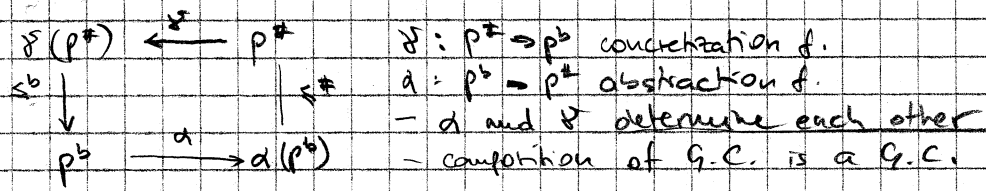 γ(p#) ←γ— p# γ : p# → p♭ concretization f.
≤♭ ↓ ≤# α : p♭ → p# abstraction f.
- α and γ determine each other
p♭ —α→ α(p♭) - composition of G.C. is a G.C.